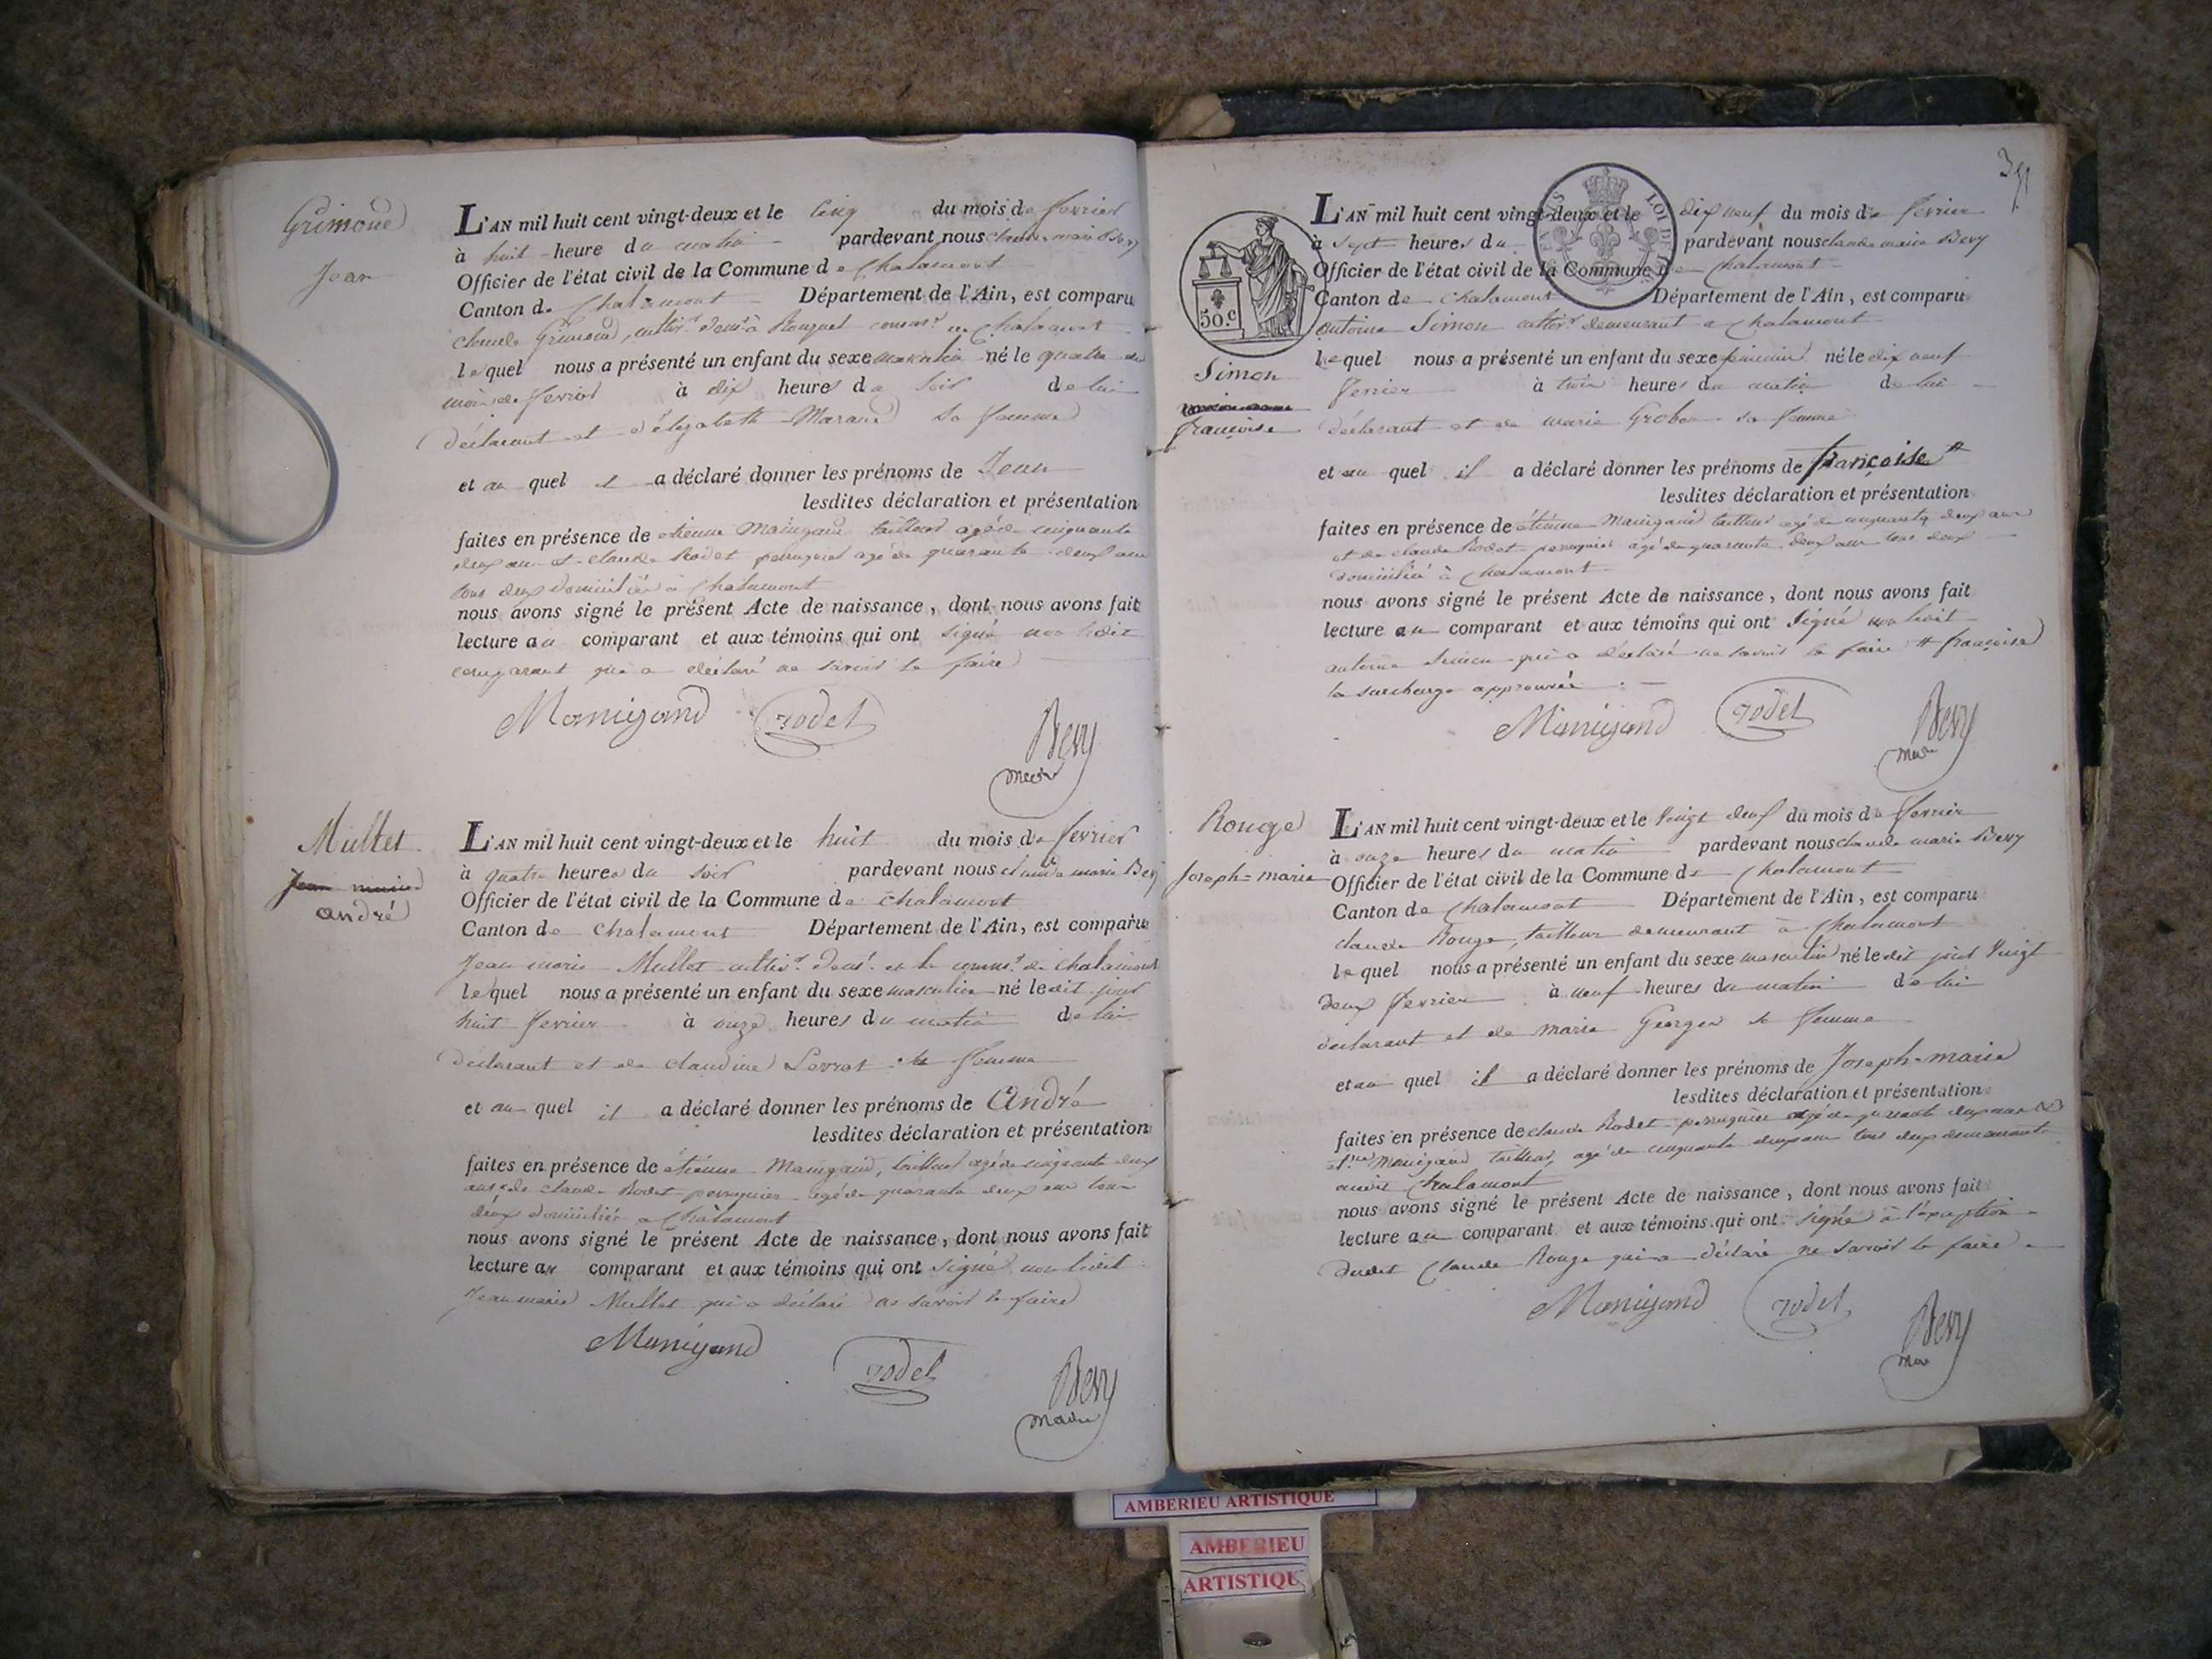 Grimoud
Jean
L'AN mil huit cent vingt-deux et le Cinq du mois de fevrier
à huit heure du matin pardevant nous claude marie Bevy
Officier de l'état civil de la Commune de Chalamont
Canton de Chalamont Département de l'Ain, est comparu
claude Grimoud, cultiv.r dem.t à Rouquet commu.e de Chalamont
lequel nous a présenté un enfant du sexe masculin né le quatre du
mois de fevrier à dix heures du soir de lui
déclarant et d'élizabeth Marand sa femme
et au quel il a déclaré donner les prénoms de Jean
lesdites déclaration et présentation
faites en présence de etienne Manigand tailleur agé de cinquante
deux ans et claude Rodet perruquier agé de quarante deux ans
tous deux domiciliés à Chalamont
nous avons signé le présent Acte de naissance, dont nous avons fait
lecture au comparant et aux témoins qui ont signé non ledit
comparant qui a déclaré ne savoir le faire
Manigand rodet Bevy
maire
Mullet
Jean marie
andré
L'AN mil huit cent vingt-deux et le huit du mois de fevrier
à quatre heures du soir pardevant nous claude marie Bevy
Officier de l'état civil de la Commune de chalamont
Canton de Chalamont Département de l'Ain, est comparu
Jean marie Mullet cultiv.r dem.t en la commu.e de chalamont
lequel nous a présenté un enfant du sexe masculin né ledit jour
huit fevrier à onze heures du matin de lui
déclarant et de claudine Levrat sa femme
et au quel il a déclaré donner les prénoms de André
lesdites déclaration et présentation
faites en présence de étienne Manigand, tailleur agé de cinquante deux
ans & de claude Rodet perruquier agé de quarante deux ans tous
deux domiciliés a Chalamont
nous avons signé le présent Acte de naissance, dont nous avons fait
lecture au comparant et aux témoins qui ont signé non ledit
Jean marie Mullet qui a déclaré ne savoir le faire
Manigand rodet Bevy
maire
351
50.c
LOI DE
Simon
françoise
L'AN mil huit cent vingt-deux et le dix neuf du mois de fevrier
à sept heures du pardevant nous claude marie Bevy
Officier de l'état civil de la Commune de Chalamont
Canton de chalamont Département de l'Ain, est comparu
antoine Simon cultiv.r demeurant a Chalamont
lequel nous a présenté un enfant du sexe féminin né le dix neuf
fevrier à trois heures du matin de lui
déclarant et de marie Grobon sa femme
et au quel il a déclaré donner les prénoms de françoise #
lesdites déclaration et présentation
faites en présence de étienne Manigand tailleur agé de cinquante deux ans
et de claude Rodet perruquier agé de quarante deux ans tous deux
domiciliés à Chalamont
nous avons signé le présent Acte de naissance, dont nous avons fait
lecture au comparant et aux témoins qui ont signé non ledit
antoine Simon qui a déclaré ne savoir le faire # françoise
la surcharge approuvée
Manigand rodet Bevy
maire
Rouge
Joseph-marie
L'AN mil huit cent vingt-deux et le Vingt deux du mois de fevrier
à onze heures du matin pardevant nous claude marie Bevy
Officier de l'état civil de la Commune de Chalamont
Canton de Chalamont Département de l'Ain, est comparu
claude Rouge, tailleur demeurant à Chalamont
lequel nous a présenté un enfant du sexe masculin né ledit jour Vingt
deux fevrier à neuf heures du matin de lui
déclarant et de marie Georges sa femme
et au quel il a déclaré donner les prénoms de Joseph-marie
lesdites déclaration et présentation
faites en présence de claude Rodet perruquier agé de quarante deux ans &
Manigand tailleur, agé de cinquante deux ans tous deux demeurants
audit Chalamont
nous avons signé le présent Acte de naissance, dont nous avons fait
lecture au comparant et aux témoins qui ont signé à l'exception
dudit Claude Rouge qui a déclaré ne savoir le faire
Manigand rodet Bevy
maire
AMBERIEU ARTISTIQUE
AMBERIEU
ARTISTIQUE